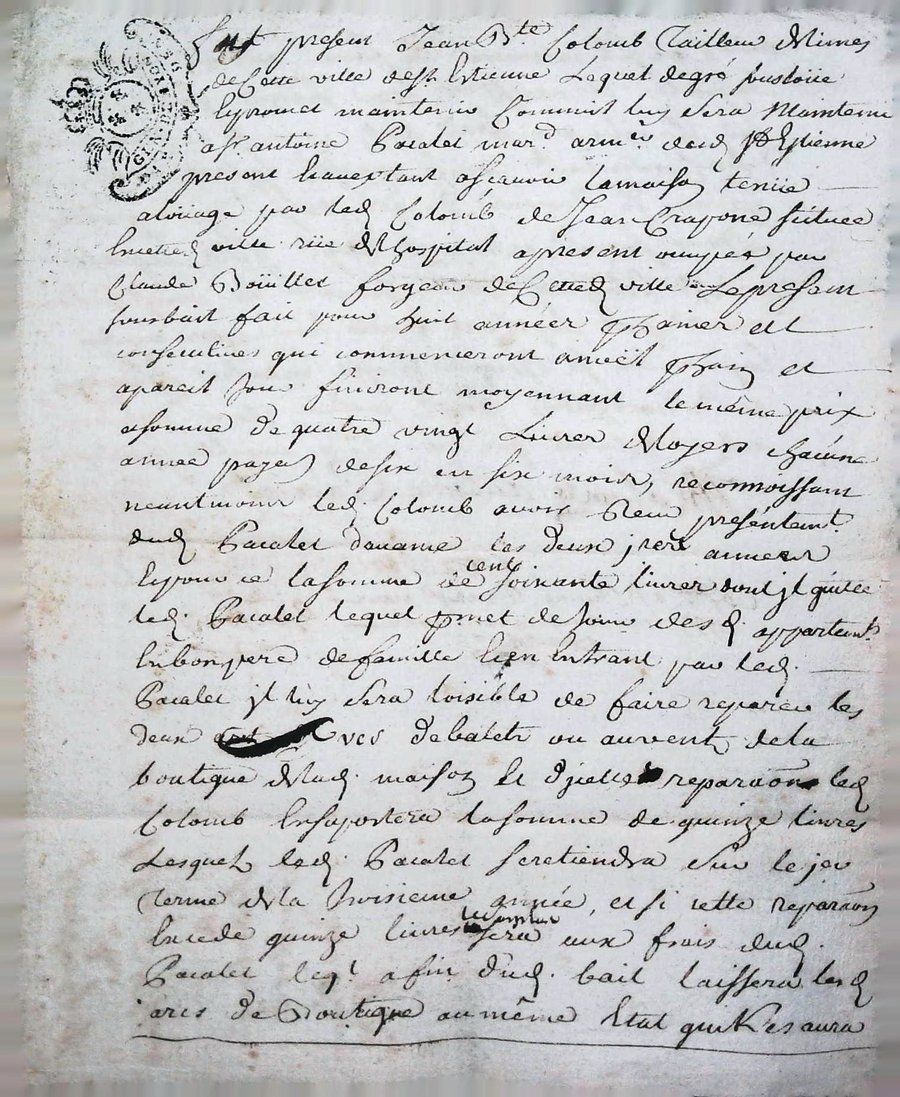 fut present Jean Bte Colomb Tailleur de limes
de Cette ville de st Estienne Lequel de gré soustoüe
Et promet maintenir Comme il luy sera Maintenu
a sr antoine Pacalet mard armr dud St Estienne
present Et aceptant asçavoir la maison tenüe
a loüage par led Colomb de Jean Crapone scituee
En cetted ville rüe de Lhospital apresent occupée par
Claude Boüillet forgeur de Cetted ville Le present
sousbail fait pour huit années et
consecutives qui commenceront a noël et
a pareil jour finiront moyennant le même prix
et somme de quatre vingt Livres de Loyers chacune
année payes de six en six mois, reconnoissant
neantmoins led. Colomb avoir Reçu présentemt
dud Pacalet d'avance les deux jres années
Et pour ce la somme de cent soixante livres dont jl quitte
led. Pacalet lequel pmet de Joüir desd appartemts
En bon pere de famille Et en Entrant par led.
Pacalet jl luy sera loisible de faire reparer les
deux arcs de la
boutique de lad. maison Et d'jcelle reparaõn led
Colomb En suportera la somme de quinze livres
Lesquels led. Pacalet se retiendra sur le jer
Terme de la troisieme année, et si cette reparaõn
Excede quinze livres le surplus sera aux frais dud.
Pacalet leql a fin dud. bail laissera lesd
arcs de Boutique au même Etat qu'il les aura